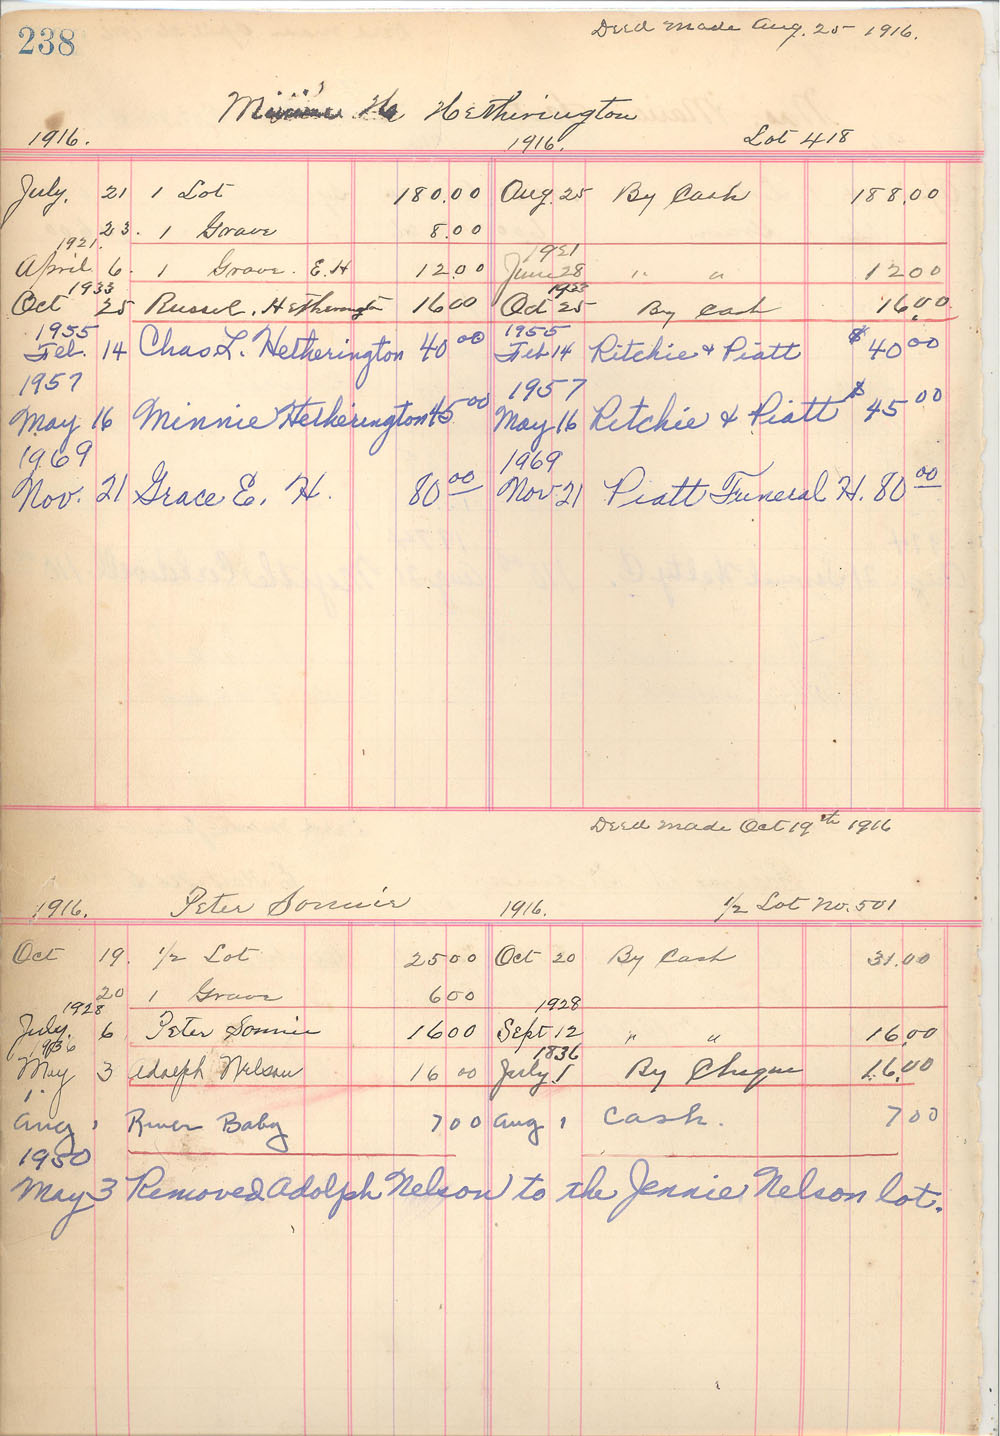 238
Deed Made Aug. 25 1916.
Hetherington
1916. 1916. Lot 418
July. 21 1 Lot 180.00 Aug. 25 By Cash 188.00
23. 1 Grave 8.00
1921. 1921
April 6. 1 Grave. E.H 12.00 June 28 " " 12.00
1933 1933
Oct 25 Russel. Hetherington 16.00 Oct 25 By Cash 16.00
1955 1955
Feb. 14 Chas L. Hetherington 40.00 Feb 14 Ritchie & Piatt $40.00
1957 1957
May 16 Minnie Hetherington 45.00 May 16 Ritchie & Piatt $45.00
1969 1969
Nov. 21 Grace E. H. 80.00 Nov 21 Piatt Funeral H. 80.00
Deed Made Oct 19th 1916
1916. Peter Sonnie 1916. 1/2 Lot No. 501
Oct 19. 1/2 Lot 25 00 Oct 20 By Cash 31.00
20 1 Grave 6 00
1928 1928
July. 6 Peter Sonnie 16 00 Sept 12 " " 16.00
1936 1836
May 3 Adolph Nelson 16 00 July 1 By Cheque 16.00
Aug 1 Baby 7 00 Aug 1 Cash. 7 00
1950
May 3 Removed Adolph Nelson to the Jennie Nelson lot.